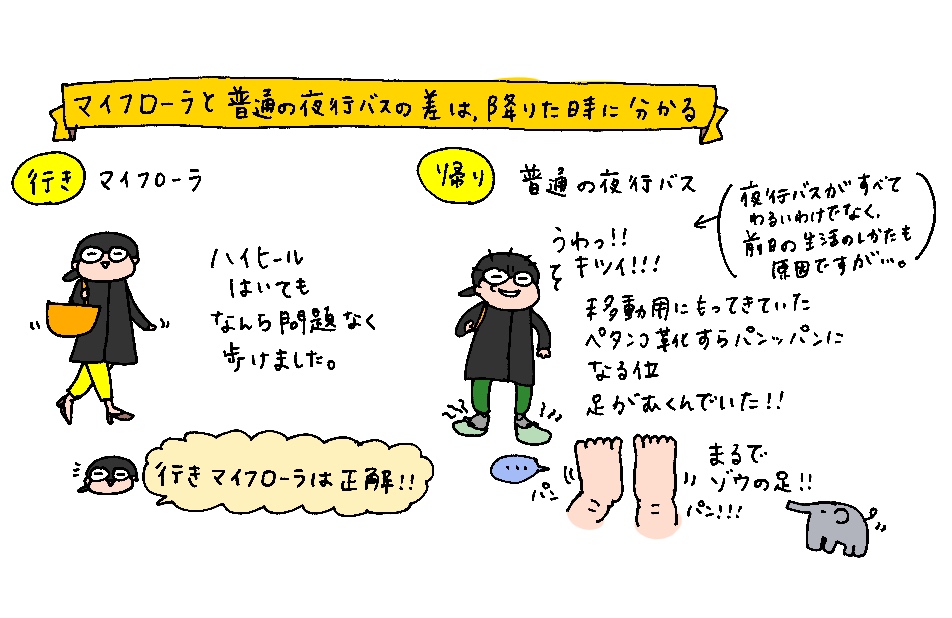 マイフローラと普通の夜行バスの差は、降りた時に分かる
行き マイフローラ
ハイヒール
はいても
なんら問題なく
歩けました。
行きマイフローラは正解!!
帰り 普通の夜行バス
(夜行バスがすべて
わるいわけでなく、
前日の生活のしかたも
原因ですが…。)
うわっ!!
キツイ!!!
移動用にもってきていた
ペタンコ靴すらパンッパンに
なる位
足がむくんでいた!!
...
パン
パン!!!
まるで
ゾウの足!!